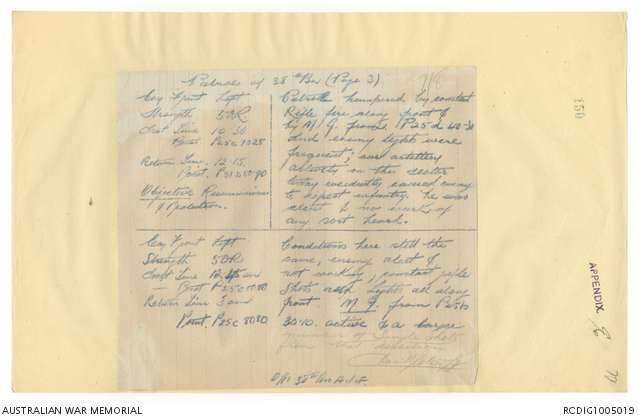 Patrols of 38th Bn (Page 3)
Coy Front Left
Strength 5 OR
Out Time 10.30
Point P25c 10.25
Return Time 12.15
Point.
Objective Reconnaissance
& Protection.
Patrol hampered by constant
Rifle fire along front &
by M.G. from P25d 40.30
and enemy lights were
frequent; our artillery
activity in this sector
today evidently caused enemy
to expect infantry. He was
alert & no work of
any sort heard.
Coy Front Left
Strength 5 OR
Out Time 12.45 am
Point P25c
Return Time 3 am
Point. P25c 8080
Conditions here still the
same, enemy alert &
not working, constant rifle
shots and lights all along
front M.G. from P25b
30.10. active & a large
of single shots
from
38th Bn
150
APPENDIX.
AUSTRALIAN WAR MEMORIAL
RCDIG1005019